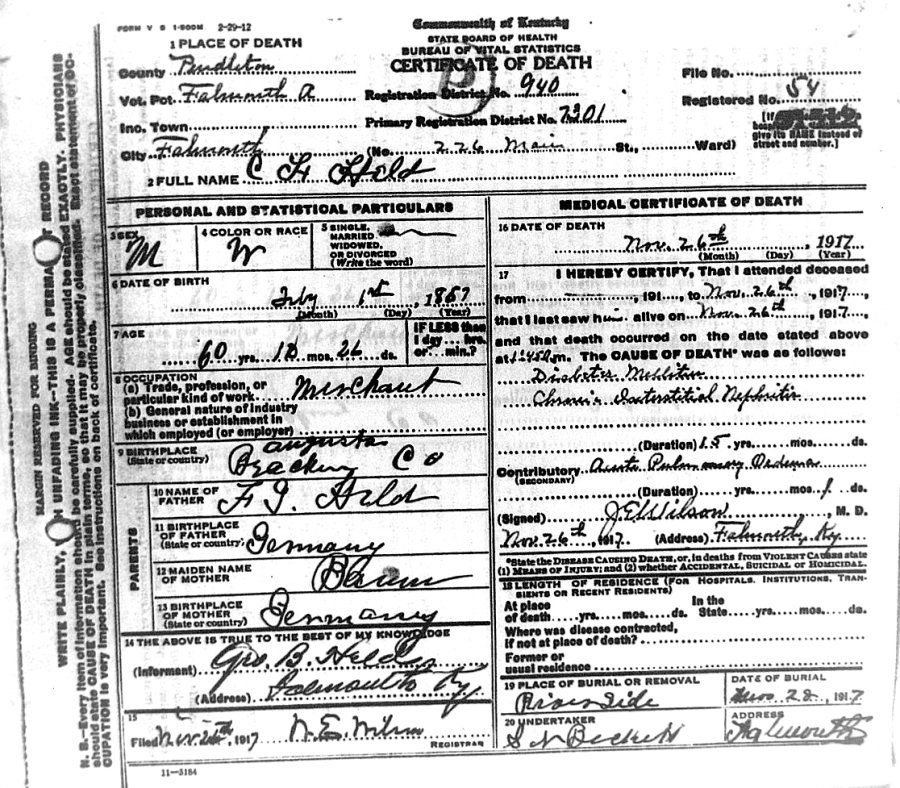 FORM V S 1-500M 2-29-12
Commonwealth of Kentucky
STATE BOARD OF HEALTH
BUREAU OF VITAL STATISTICS
CERTIFICATE OF DEATH
1 PLACE OF DEATH
County Pendleton
Vot. Pct. Falmouth A
Inc. Town
City Falmouth (No. 226 Main St., Ward)
Registration District No. 940
Primary Registration District No. 7301
File No.
Registered No. 54
[If
give its NAME instead of
street and number.]
2 FULL NAME C H Held
PERSONAL AND STATISTICAL PARTICULARS
3 SEX
M
4 COLOR OR RACE
W
5 SINGLE,
MARRIED
WIDOWED,
OR DIVORCED
(Write the word)
6 DATE OF BIRTH
1st, 1857
(Month) (Day) (Year)
7 AGE
60 yrs. mos. 26 ds.
IF LESS than
1 day... hrs.
or... min.?
8 OCCUPATION
(a) Trade, profession, or
particular kind of work Merchant
(b) General nature of industry
business or establishment in
which employed (or employer)
9 BIRTHPLACE
(State or country)
Augusta
Bracken Co
PARENTS
10 NAME OF
FATHER F J Held
11 BIRTHPLACE
OF FATHER
(State or country) Germany
12 MAIDEN NAME
OF MOTHER Baum
13 BIRTHPLACE
OF MOTHER
(State or country) Germany
14 THE ABOVE IS TRUE TO THE BEST OF MY KNOWLEDGE
(Informant) Geo. B. Held
(Address) Falmouth Ky
15
Filed Nov. 26th, 1917 N. E. Wilson
REGISTRAR
11-3184
MEDICAL CERTIFICATE OF DEATH
16 DATE OF DEATH
Nov. 26th, 1917
(Month) (Day) (Year)
17 I HEREBY CERTIFY, That I attended deceased
from , 191 , to Nov. 26th, 1917,
that I last saw h alive on Nov. 26th, 1917,
and that death occurred on the date stated above
at m. The CAUSE OF DEATH* was as follows:
Diabetes Mellitus
Chronic Interstitial Nephritis
(Duration) 15 yrs. mos. ds.
Contributory Acute Pulmonary Oedema
(SECONDARY)
(Duration) yrs. mos. 1 ds.
(Signed) J E Wilson, M. D.
Nov. 26th, 1917. (Address) Falmouth, Ky
*State the DISEASE CAUSING DEATH, or, in deaths from VIOLENT CAUSES state
(1) MEANS OF INJURY; and (2) whether ACCIDENTAL, SUICIDAL or HOMICIDAL.
18 LENGTH OF RESIDENCE (FOR HOSPITALS, INSTITUTIONS, TRAN-
SIENTS OR RECENT RESIDENTS)
At place In the
of death yrs. mos. ds. State yrs. mos. ds.
Where was disease contracted,
if not at place of death?
Former or
usual residence
19 PLACE OF BURIAL OR REMOVAL
Riverside
DATE OF BURIAL
1917
20 UNDERTAKER
S N Beckett
ADDRESS
Falmouth
MARGIN RESERVED FOR BINDING
WRITE PLAINLY, UNFADING INK—THIS IS A RECORD
N. B.—Every item of information should be carefully supplied. AGE should be stated EXACTLY. PHYSICIANS
should state CAUSE OF DEATH in plain terms, so that it may be properly classified. Exact statement of OC-
CUPATION is very important. See instructions on back of certificate.